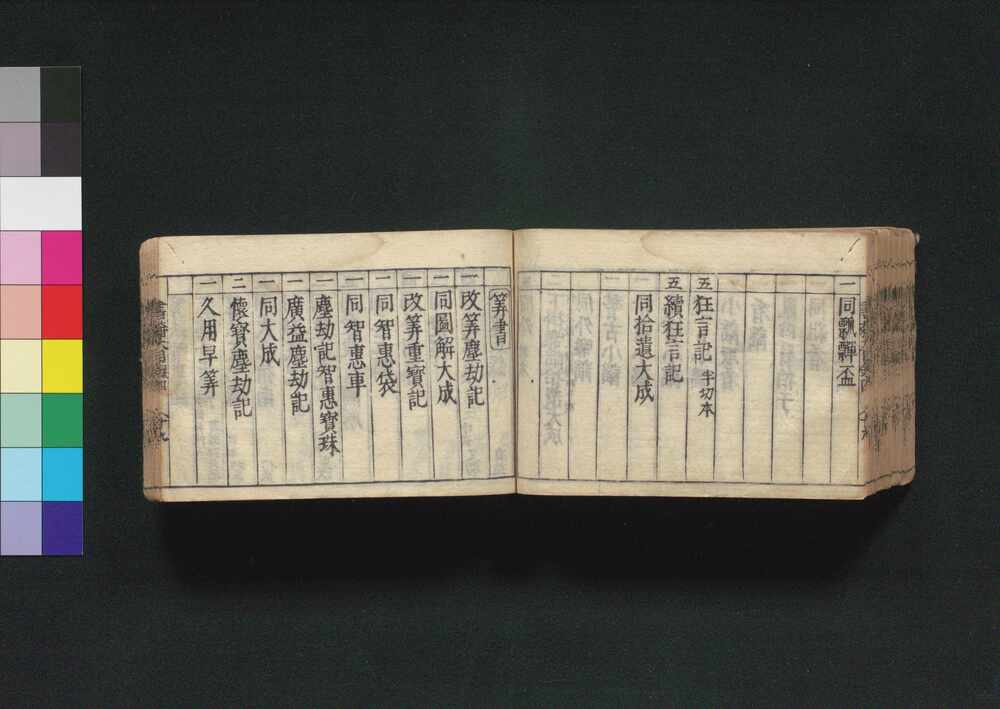 一 同瓢簞盃
五 狂言記 半切本
五 續狂言記
一 同拾遺大成
筭書
一 改筭塵劫記
一 同圖解大成
一 改筭重寶記
一 同智惠袋
一 同智惠車
二 塵劫記智惠寶珠
一 廣益塵劫記
一 同大成
二 懷寶塵劫記
一 久用早筭